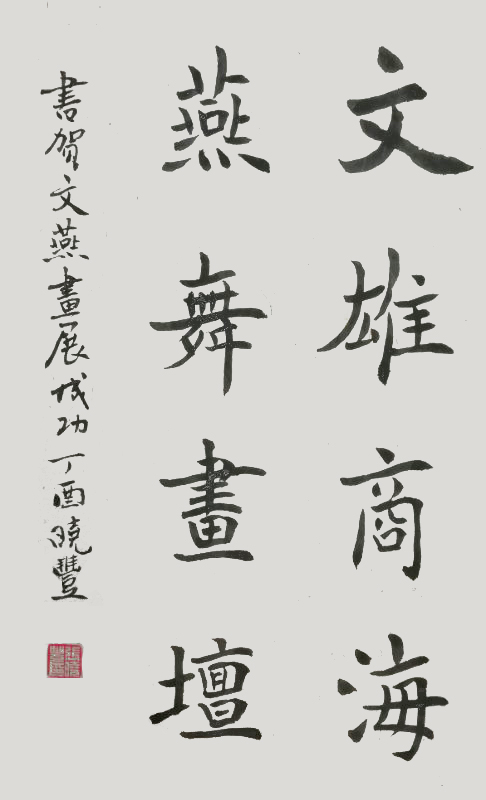 文雄商海
燕舞畫壇
書賀文燕畫展成功丁酉曉豐